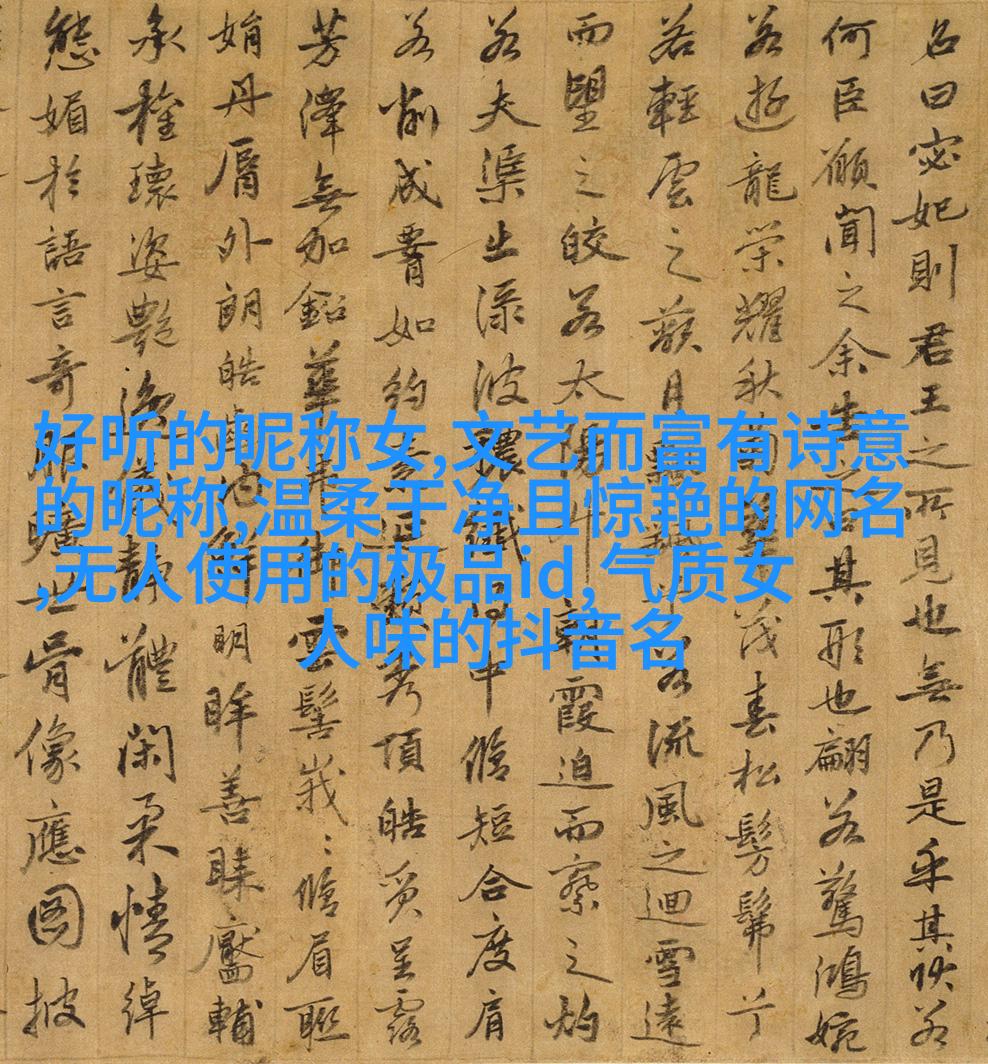 好听的昵称女,文艺而富有诗意
的昵称,温柔干净且惊艳的网名
,无人使用的极品id, 气质女
人味的抖音名
名曰宓妃則君王之所見也無乃是乎其狀若
何臣願聞之余告之曰其形也翩若驚鴻婉
若遊龍榮耀秋菊華茂春松髣髴兮
若輕雲之蔽月飄颻兮若流風之迴雪遠
而望之皎若太陽升朝霞迫而察之灼
若夫渠出渌波穠纖得中脩短合度肩
若削成要如約素延頸秀項皓質呈露
芳澤無加鉛華弗御雲髻峩〻脩眉聯
娟丹脣外朗皓齒內鮮明眸善睞靨輔
承權瓌姿艷逸儀靜體閑柔情綽
態媚於語言奇服曠世骨像應圖披